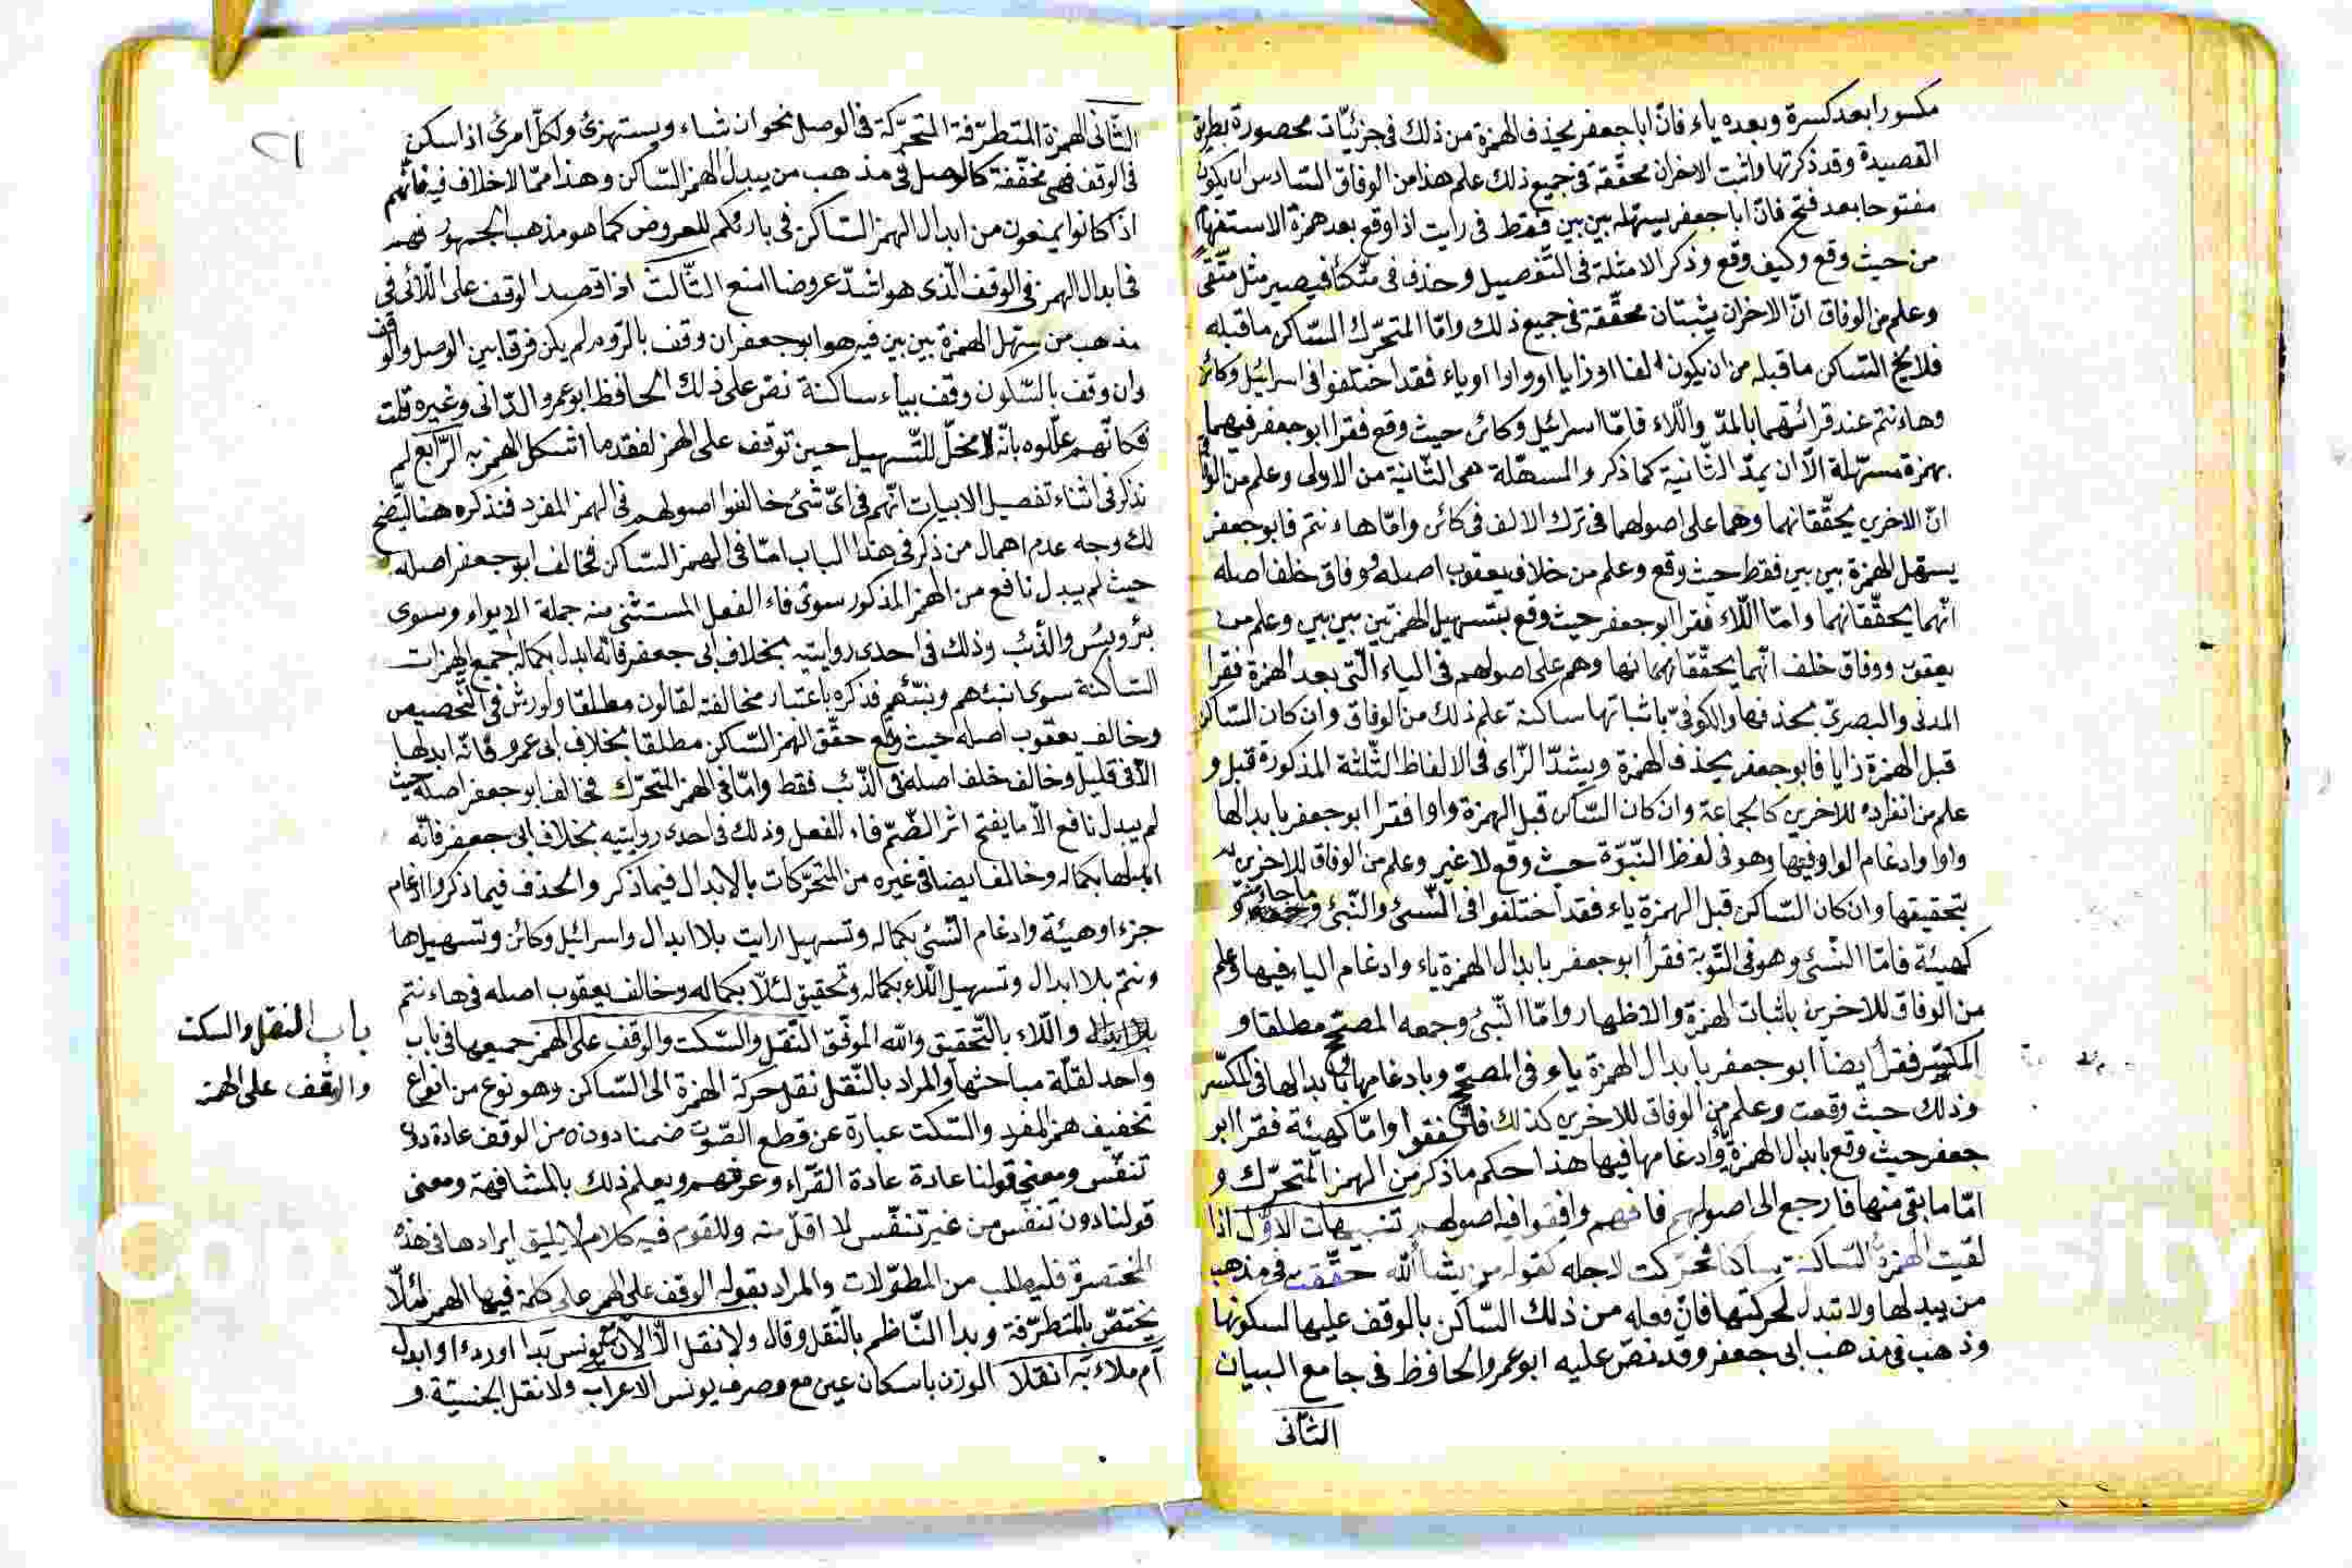 مكسورا بعد كسرة وبعده ياء فانّ ابا جعفر يحذف الهمزة من ذلك فى جزئيّات محصورة بطريق
القصيدة وقد ذكرتها واثبت الاخران محقّقة فى جميع ذلك علم هذا من الوفاق السّادس ان يكون
مفتوحا بعد فتح فانّ ابا جعفر يسهّله بين بين فقط فى رايت اذا وقع بعد همزة الاستفهام
من حيث وقع وكيف وقع وذكر الامثلة فى التّفصيل وحذف فى متّكأ فيصير مثل متّقى
وعلم من الوفاق انّ الاخران يثبتان محقّقة فى جميع ذلك وامّا المتحرّك السّاكن ما قبله
فلا يخ السّاكن ما قبله من ان يكون الفا او زايا او واوا او ياء فقد اختلفوا فى اسرائيل وكائن
وهاءنتم عند قرائتهما بالمدّ واللّاء فامّا اسرائيل وكائن حيث وقع فقرا ابو جعفر فيهما
بهمزة مسهّلة الّا ان يمدّ الثّانية كما ذكر والمسهّلة هى الثّانية من الاولى وعلم من الوفاق
انّ الاخرين يحقّقانهما وهما على اصولهما فى ترك الالف فى كائن وامّا هاءنتم فابو جعفر
يسهّل الهمزة بين بين فقط حيث وقع وعلم من خلاف يعقوب اصله ووفاق خلف اصله
انّهما يحقّقانهما وامّا اللّاء فقرا ابو جعفر حيث وقع بتسهيل الهمزتين بين بين وعلم من
يعقوب ووفاق خلف انّهما يحقّقانهما وهم على اصولهم فى الياء الّتى بعد الهمزة فقرا
المدنى والبصرىّ بحذفها والكوفىّ باثباتها ساكنة علم ذلك من الوفاق وان كان السّاكن
قبل الهمزة زايا فابو جعفر يحذف الهمزة ويشدّ الزّاى فى الالفاظ الثّلثة المذكورة قبل و
علم من انفراده للاخرين كالجماعة وان كان السّاكن قبل الهمزة واوا فقرا ابو جعفر بابدالها
واوا وادغام الواو فيها وهو فى لفظ النّبوّة حيث وقع لا غير وعلم من الوفاق للاخرين
بتحقيقها وان كان السّاكن قبل الهمزة ياء فقد اختلفوا فى النّسئ والنّبئ و
كهيئة فامّا النّسئ وهو فى التّوبة فقرأ ابو جعفر بابدال الهمزة ياء وادغام الياء فيها وعلم
من الوفاق للاخرين باثبات الهمزة والاظهار وامّا النّبئ وجمعه المصحّح مطلقا و
المكسّر فقرأ ايضا ابو جعفر بابدال الهمزة ياء فى المصحّح وبادغامها وبابدالها فى المكسّر
وذلك حيث وقعت وعلم من الوفاق للاخرين كذلك فاتّفقوا وامّا كهيئة فقرا ابو
جعفر حيث وقع بابدال الهمزة ياء وادغامها فيها هذا حكم ما ذكر من الهمز المتحرّك و
امّا ما بقى منها فارجع الى اصولهم فانهم وافقوا فيه اصولهم تنبيهات الاوّل اذا
لقيت الهمزة السّاكنة ساكنا فحرّكت لاجله كقوله من يشأ اللّه حقّقت فى مذهب
من يبدلها ولا تبدل لحركتها فانّ فعله من ذلك السّاكن بالوقف عليها لسكونها
وذهب فى مذهب ابى جعفر وقد نصّ عليه ابو عمرو الحافظ فى جامع البيان
الثّانى
١٢
الثّانى الهمزة المتطرّفة المتحرّكة فى الوصل نحو ان شاء ويستهزئ ولكلّ امرئ اذا سكن
فى الوقف فهى مخفّفة كالوصل فى مذهب من يبدل الهمز السّاكن وهذا ممّا لا خلاف فيه فانّهم
اذ كانوا يمنعون من ابدال الهمز السّاكن فى بارئكم للعروض كما هو مذهب الجمهور فهم
فى ابدال الهمز فى الوقف الّذى هو اشدّ عروضا امنع الثّالث اذا قصد الوقف على اللّائى فى
مذهب من يسهّل الهمزة بين بين فيه هو ابو جعفر ان وقف بالرّوم لم يكن فرقا بين الوصل والوقف
وان وقف بالسّكون وقف بياء ساكنة نصّ على ذلك الحافظ ابو عمرو الدّانى وغيره قلت
فكانّهم علّلوه بانّه لا مخلّ للتّسهيل حين توقف على الهمز لفقد ما اشكل الهمز به الرّابع لم
نذكر فى اثناء تفصيل الابيات انّهم فى اىّ شئ خالفوا اصولهم فى الهمز المفرد فنذكره هنا ليتّضح
لك وجه عدم اهمال من ذكر فى هذا الباب امّا فى الهمز السّاكن فخالف ابو جعفر اصله
حيث لم يبدل نافع من الهمز المذكور سوى فاء الفعل المستثنى منه جملة الايواء وسوى
بئر وبئس والذّئب وذلك فى احدى روايتيه بخلاف ابى جعفر فانّه ابدل بكماله جميع الهمزات
السّاكنة سوى انبئهم ونبّئهم فذكره باعتبار مخالفته لقالون مطلقا ولورش فى التّخصيص
وخالف يعقوب اصله حيث وقع حقّق الهمز السّاكن مطلقا بخلاف ابى عمرو فانّه ابدلها
الّا فى قليل وخالف خلف اصله فى الذّئب فقط وامّا فى الهمز المتحرّك فخالف ابو جعفر اصله حيث
لم يبدل نافع الّا ما يفتح اثر الضّمّ فاء الفعل وذلك فى احدى روايتيه بخلاف ابى جعفر فانّه
ابدلها بكماله وخالف ايضا فى غيره من المتحرّكات بالابدال فيما ذكر والحذف فيما ذكر وادغام
جزءا وهيئة وادغام النّسئ بكماله وتسهيل ارايت بلا ابدال واسرائيل وكائن وتسهيل ها
ءنتم بلا ابدال وتسهيل اللّاء بكماله وتحقيق لئلّا بكماله وخالف يعقوب اصله فى هاءنتم
واللّاء بالتّحقيق واللّه الموفّق النّقل والسّكت والوقف على الهمز جميعها فى باب
واحد لقلّة مباحثها والمراد بالنّقل نقل حركة الهمزة الى السّاكن وهو نوع من انواع
تخفيف همز المفرد والسّكت عبارة عن قطع الصّوت ضمنا دونه من الوقف عادة دون
تنفّس ومعنى قولنا عادة عادة القرّاء وعرفهم ويعلم ذلك بالمشافهة ومعنى
قولنا دون تنفّس من غير تنفّس لا اقلّ منه وللقوم فيه كلام لا يليق ايرادها فى هذه
المختصرة فليطلب من المطوّلات والمراد بقوله الوقف على الهمز على كلمة فيها الهمز لئلّا
يختصّ بالمتطرّفة وبدا النّاظم بالنّقل وقال ولا نقل الّا الان مع يونس بدا او ردءا وابدل
ام ملاء به انقلا الوزن باسكان عين مع وصرف يونس الاعراب ولا نقل الجنسيّة و
باب النقل والسكت
والوقف على الهمز